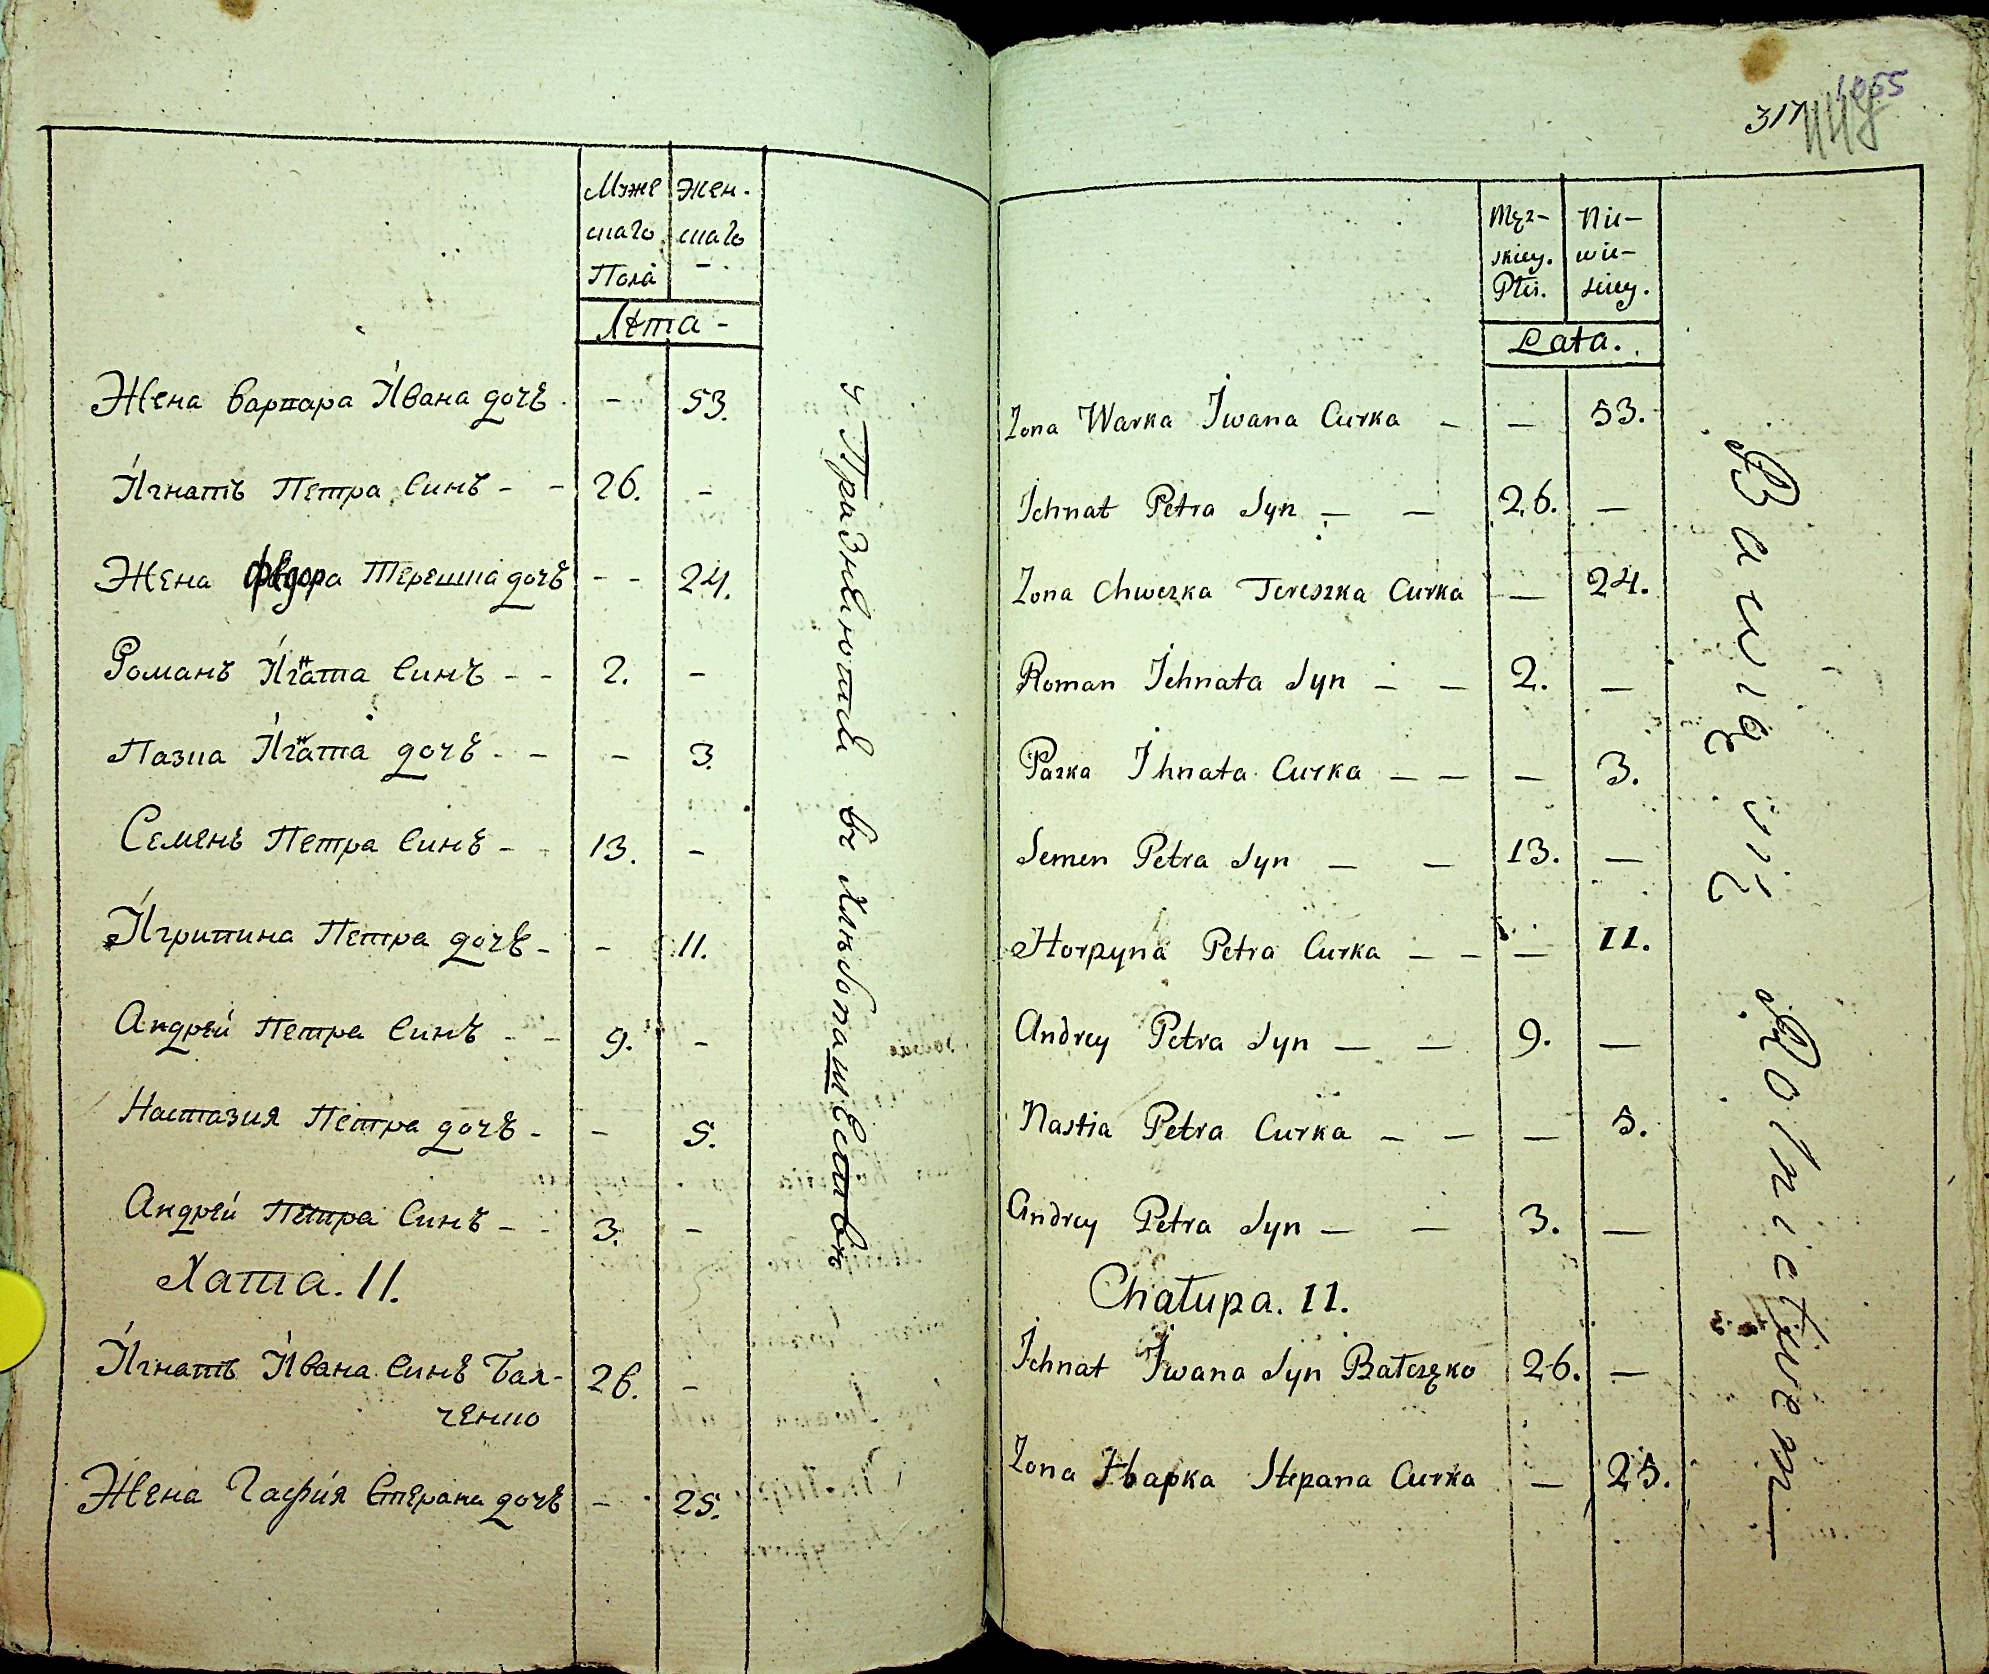 Муже Жен-
скаго скаго
Пола -
Лѣта -
Жена варвара Ивана дочь - 53.
Игнатъ Петра Синъ - - 26. -
Жена Феѵдора Терешка дочь - - 24.
Романъ Игната Синъ - - 2. -
Пазка Игната дочь - - - 3.
Семенъ Петра Синъ - - 13. -
Игрипина Петра дочь - - 11.
Андрей Петра Синъ - - 9. -
Настазия Петра дочь - - 5.
Андрей Петра Синъ - - 3. -
Хата. 11.
Игнатъ Ивана Синъ Бал- 26. -
ченко
Жена Гафия Степана дочь - 25.
Упражнаются въ Хлѣбопашествѣ
317 1055
Męz- Nie-
skiey. wie-
Płci. sciey.
Lata.
Zona Warka Iwana Curka - - 53.
Ichnat Petra Syn - - 26. -
Zona Chweszka Tereszka Curka - 24.
Roman Ichnata Syn - - 2. -
Pazka Ihnata Curka - - - 3.
Semen Petra Syn - - 13. -
Horpyna Petra Curka - - - 11.
Andrey Petra Syn - - 9. -
Nastia Petra Curka - - - 5.
Andrey Petra Syn - - 3. -
Chałupa. 11.
Ichnat Iwana Syn Bałczęko 26. -
Zona Hapka Stepana Curka - 25.
Bawię się Rolnictwem